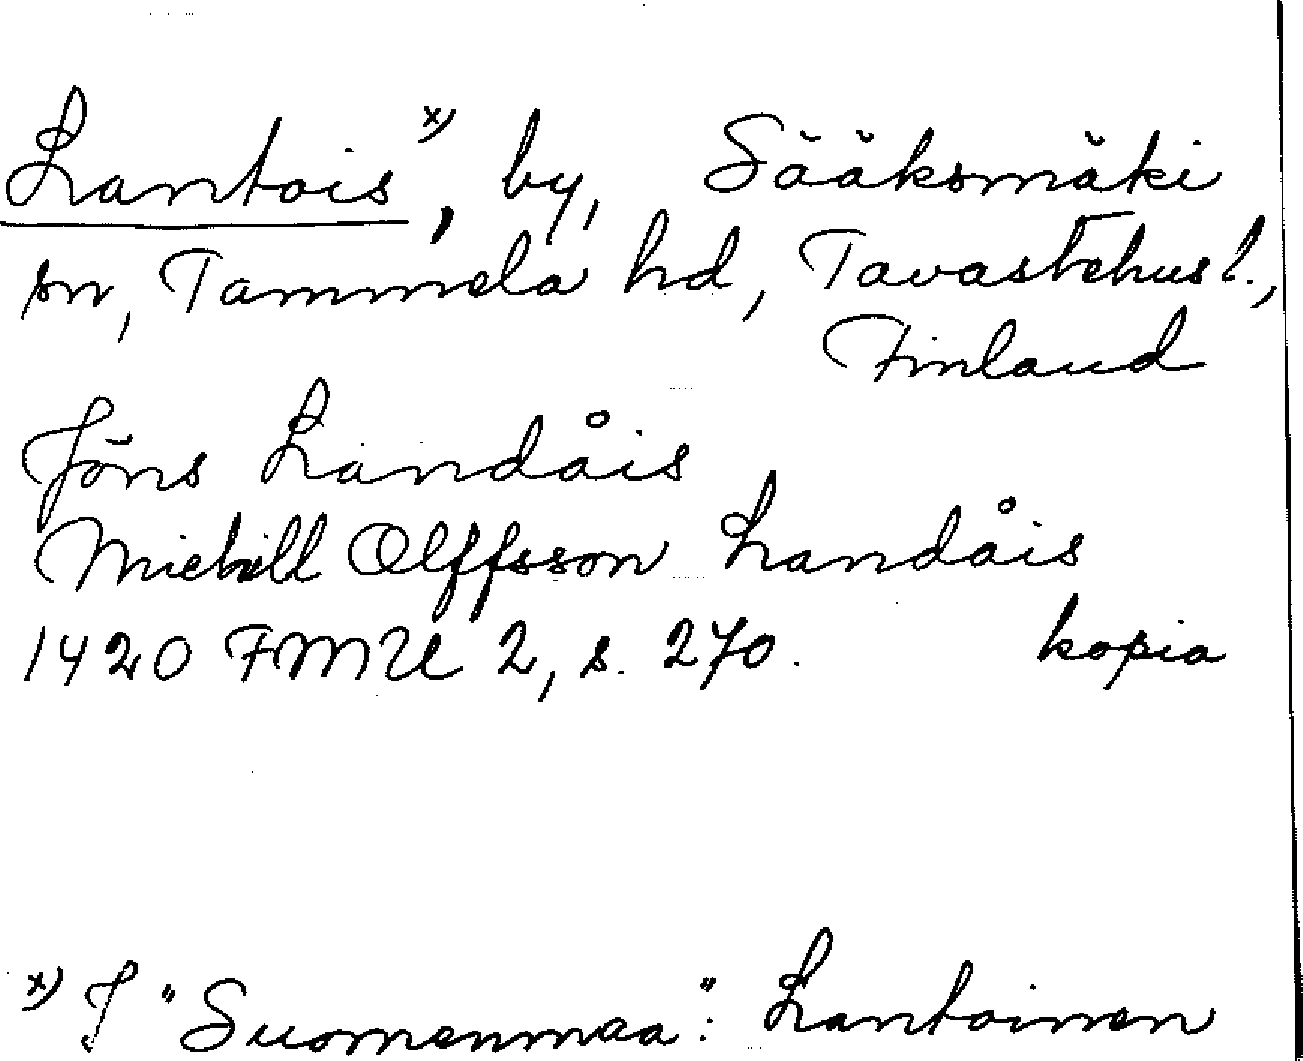 Lantois x), by, Sääksmäki
sn, Tammela hd, Tavastehus l.,
Finland
Jöns Landåis
Michill Olffsson Landåis
1420 FMU 2, s. 270. kopia
x) I "Suomenmaa": Lantoinen